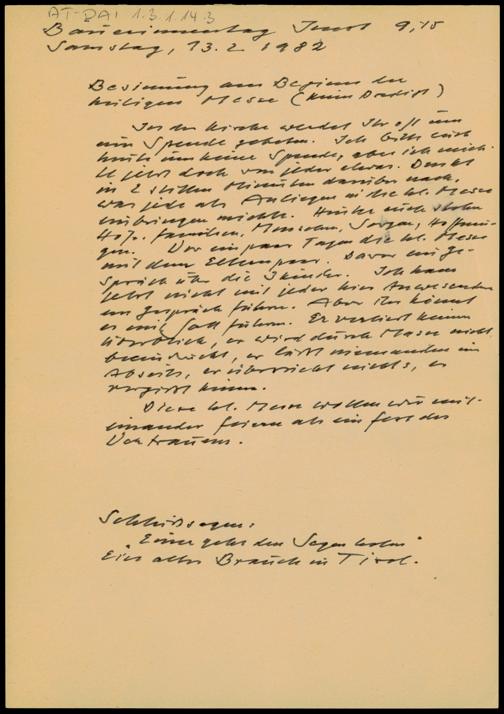 AT-DAI 1.3.1.14.3
Bäuerinnentag Imst 9,15
Samstag, 13.2.1982
Besinnung am Beginn der
heiligen Messe (keine Predigt)
In der Kirche werdet Ihr oft um
eine Spende gebeten. Ich bitte euch
heute um keine Spende, aber ich möch-
te jetzt doch von jeder etwas. Denkt
in 2 stillen Minuten darüber nach,
was jede als Anliegen in die hl. Messe
einbringen möchte. Hinter euch stehen
Höfe, Familien, Menschen, Sorgen, Hoffnun-
gen. Vor ein paar Tagen die hl. Messe
mit dem Elternpaar. Davor ein Ge-
spräch über die Kinder. Ich kann
jetzt nicht mit jeder hier Anwesenden
ein Gespräch führen. Aber ihr könnt
es mit Gott führen. Er verliert keinen
Überblick, er wird durch Masse nicht
beeindruckt, er läßt niemanden im
Abseits, er übersieht nichts, er
vergißt keinen.
Diese hl. Messe wollen wir mit-
einander feiern als ein Fest des
Vertrauens.
Schlußsegen:
"Einer geht den Segen holen"
Ein alter Brauch in Tirol.